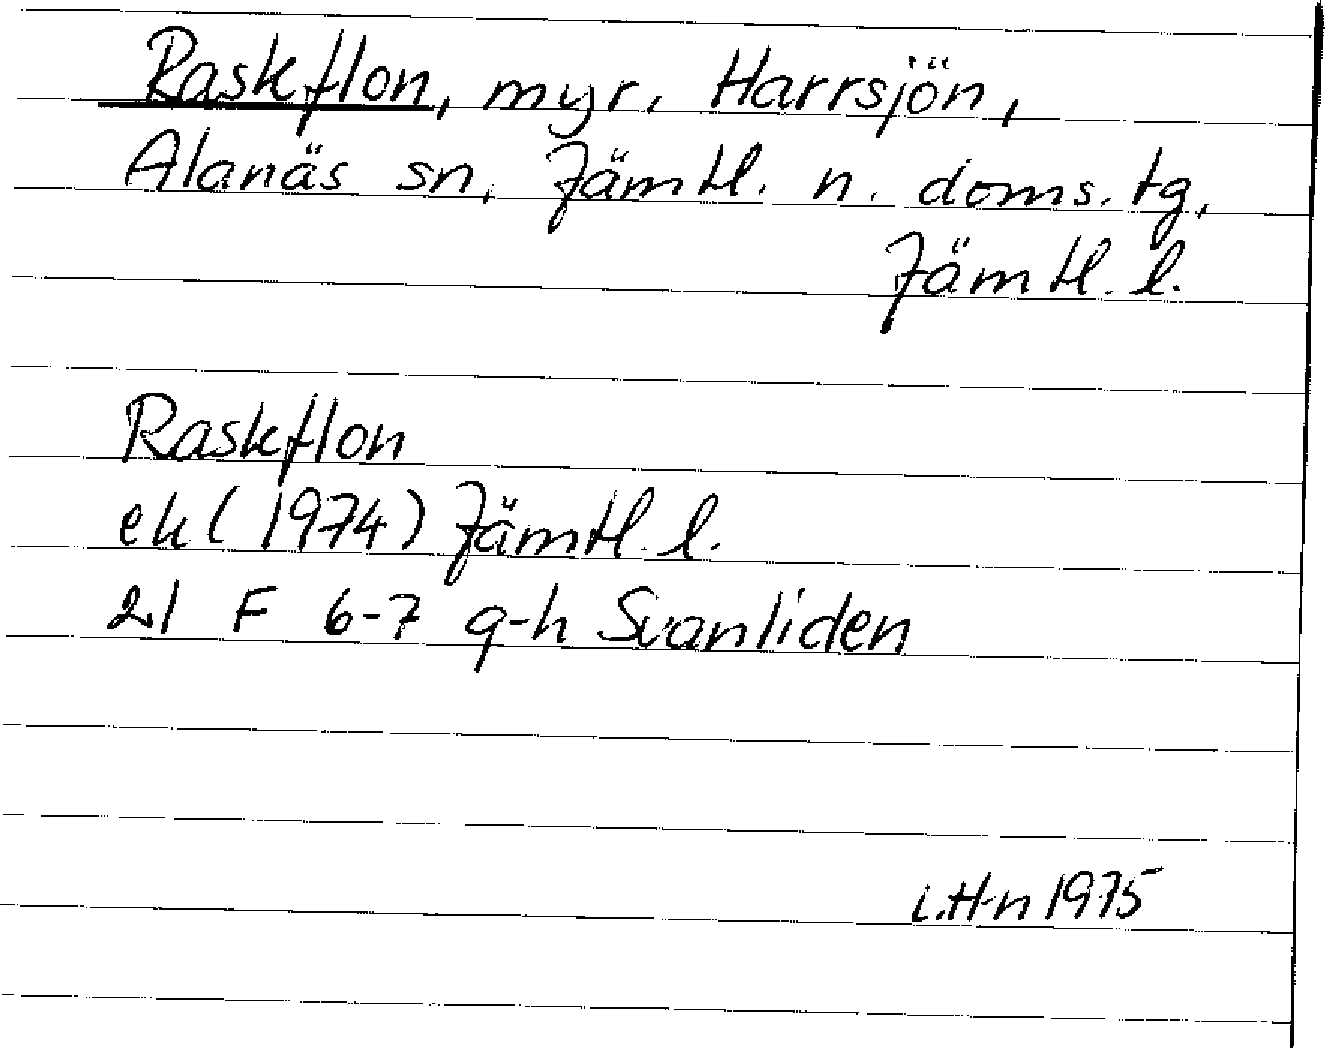 Raskflon, myr, Harrsjön,
Alanäs sn, Jämtl. n. doms. tg,
Jämtl. l.
Raskflon
ek (1974) Jämtl. l.
21 F 6-7 g-h Svanliden
L.H-n 1975